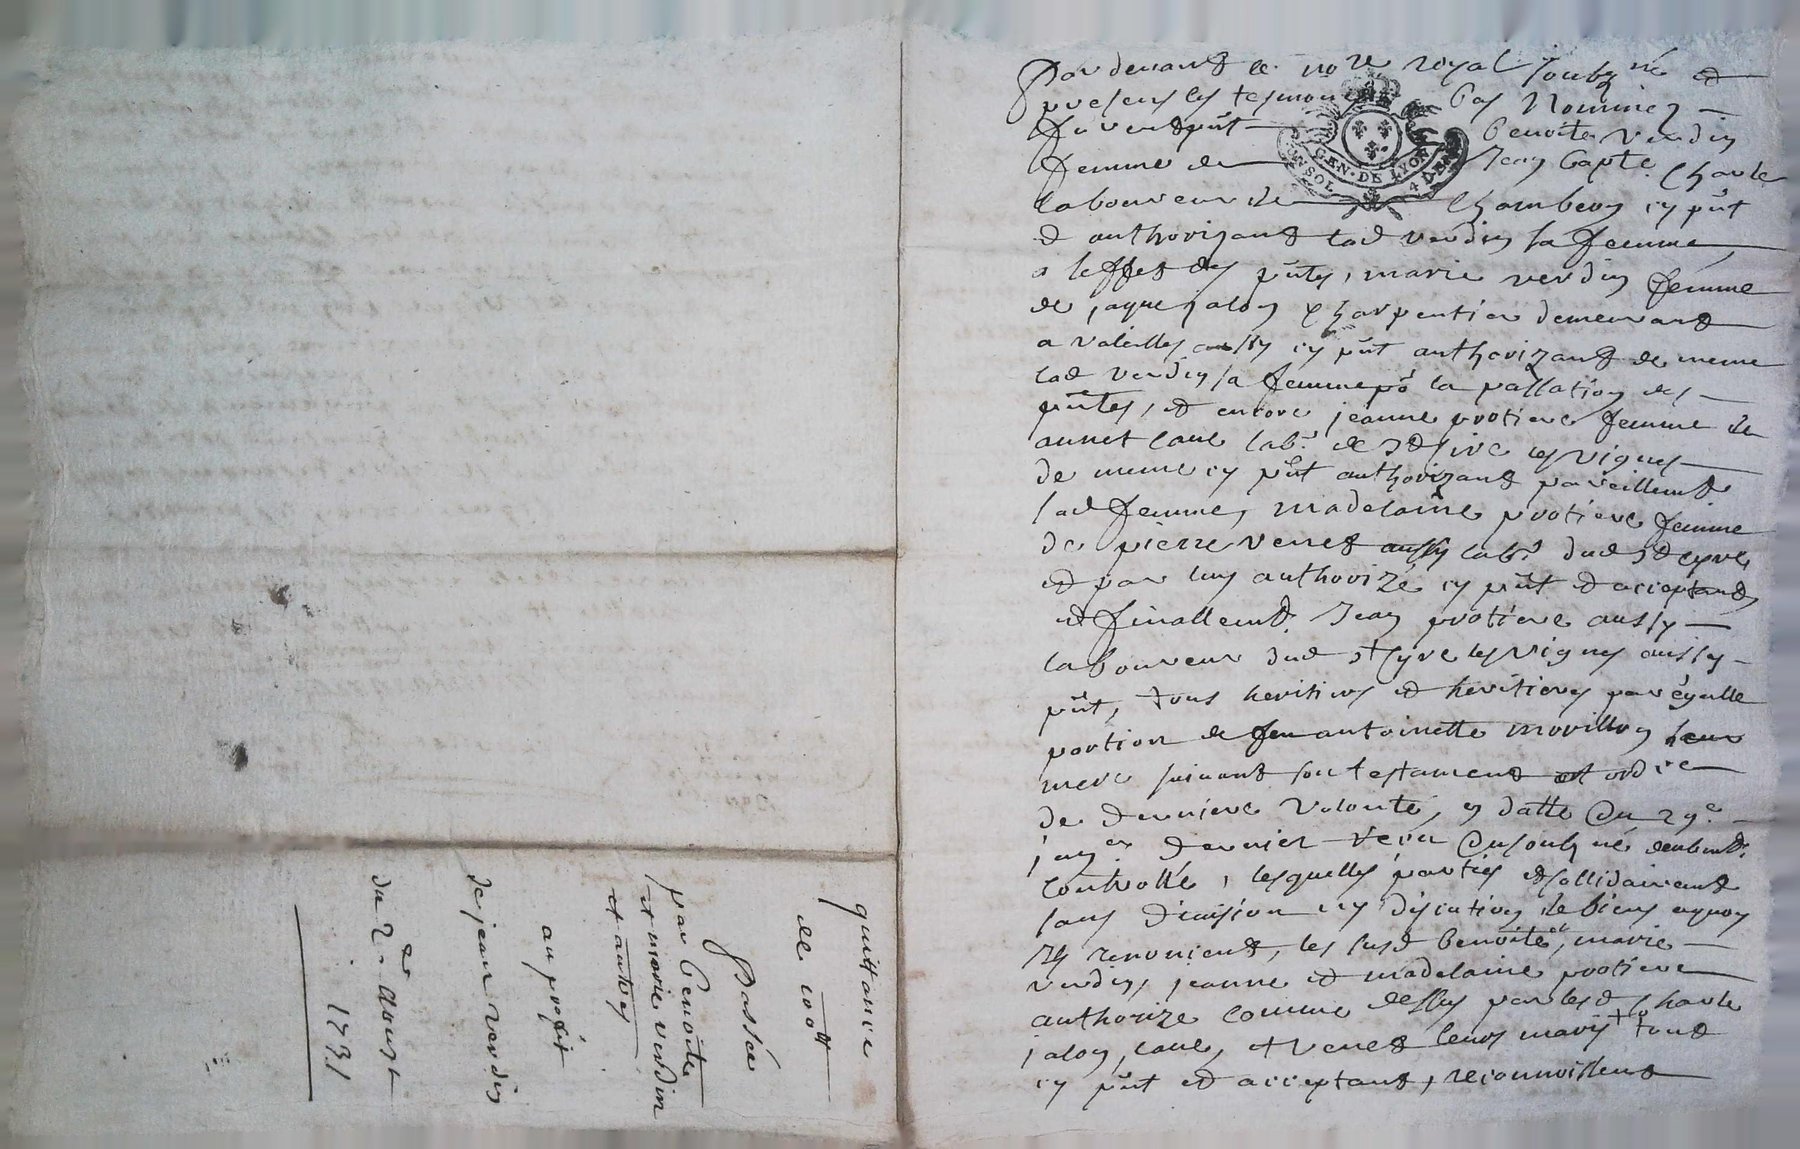 quittance
de 100tt
Passée
par Benoite
et marie verdin
et autres
au profit
de jean verdin
du 2e. aoust
1731
Par devant le nore royal soubzné et
presens les tesmoins bas Nommez
fu verst pnt Benoite verdin
femme de Jean bapte. Charle
laboureur de Chambeon cy pnt
et authorizant lad verdin sa femme
a leffet des pntes, marie verdin femme
de jaque jalon charpentier demeurant
a Valeilles aussy cy pnt authorizant de meme
lad verdin sa femme po la passation des
pntes, et encore jeanne protiere femme de
annet laue labr. de St Sire les vignes
de meme cy pnt authorizant pareillemt
sad femme, madelaine protiere femme
de pierre venet aussy labr. dud St Cyre
et par luy authorizé cy pnt et acceptant
et finallemt. Jean protiere aussy
laboureur dud St Cyre les Vignes aussy
pnt, tous heritiers et heritieres par egalle
portion de feu antoinette morillon leur
mere suivant son testament et ordre
de derniere volonté, en datte du 29e.
janer dernier receu du soubzné deubmt.
controllé, lesquelles parties et sollidairement
sans division ny discution de biens a quoy
ils renoncent, les susd benoite et, marie
verdin, jeanne et madelaine protiere
authorize comme dessus par lesd Charle
jalon, laue, et venet leurs marys tous
cy pnt et acceptant, reconnoissent
GEN. DE LYON
UN SOL 4 DEN